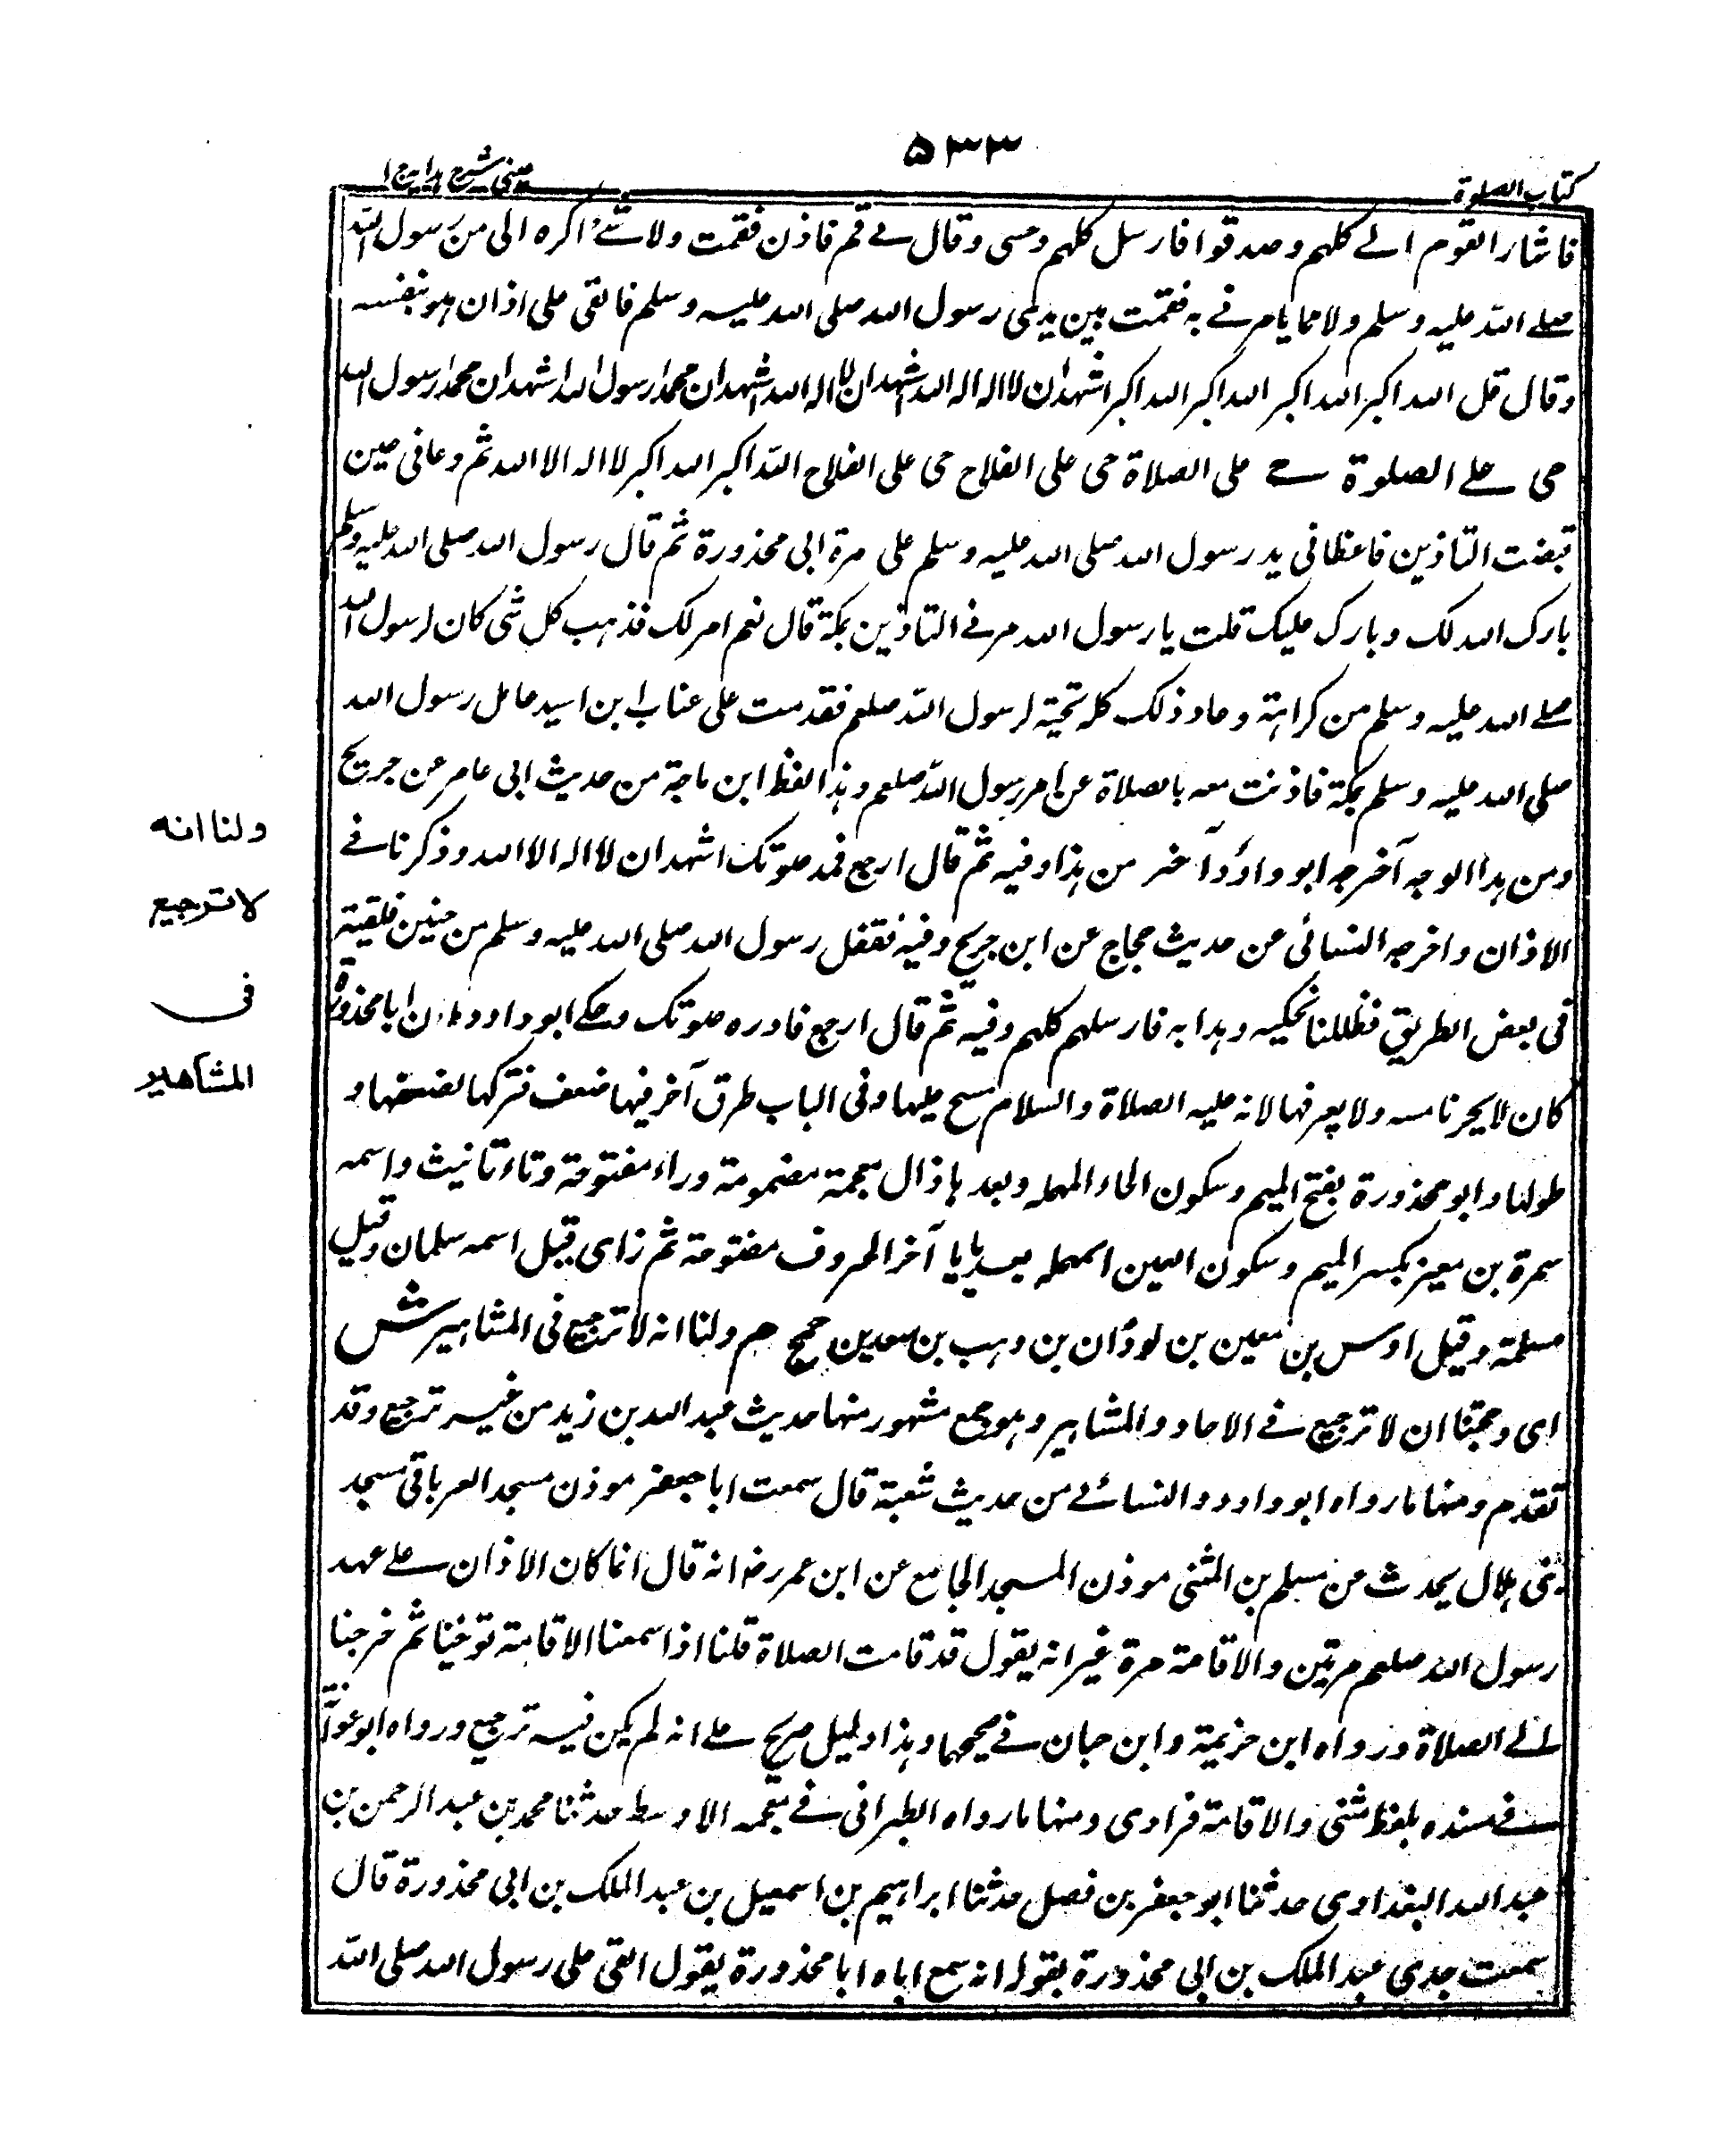 ۵۳۳
کتاب الصلوة
عینی شرح هدایه ج ا
فاشار القوم الے کلهم وصدقوا فارسل کلهم وحبسی وقال لے قم فاذن فقمت ولا شئ اکره الی من رسول الله
صلے الله علیه وسلم ولا مما یامرنے به فقمت بین یدی رسول الله صلی الله علیه وسلم فالقی علی اذان هو بنفسه
وقال قل الله اکبر الله اکبر الله اکبر الله اکبر اشهد ان لا اله الا الله اشهد ان لا اله الا الله اشهد ان محمدا رسول الله اشهد ان محمدا رسول الله
حی علے الصلوة حے علی الصلاة حی علی الفلاح حی علی الفلاح الله اکبر الله اکبر لا اله الا الله ثم دعانی حین
قبضت التاذین فاعطانی ید رسول الله صلی الله علیه وسلم علی مرة ابی محذورة ثم قال رسول الله صلی الله علیه وسلم
بارک الله لک وبارک علیک قلت یا رسول الله مرنے التاذین بمکة قال نعم امر لک فذهب کل شی کان لرسول الله
صلے الله علیه وسلم من کراهة وعاد ذلک کله تحیة لرسول الله صلعم فقدمت علی عتاب ابن اسید عامل رسول الله
صلی الله علیه وسلم بمکة فاذنت معه بالصلاة عن امر رسول الله صلعم وهذا لفظ ابن ماجة من حدیث ابی عامر عن جریج
ومن هذا الوجه آخرجه ابو داؤد آخر من هذا وفیه ثم قال ارجع فمد صوتک اشهد ان لا اله الا الله وذکرنا فے
الاذان واخرجه النسائی عن حدیث حجاج عن ابن جریج وفیه فقفل رسول الله صلی الله علیه وسلم من حنین فلقیة
فی بعض الطریق فظللنا نحکیه وهذا به فارسلهم کلهم وفیه ثم قال ارجع فادره صوتک وحکے ابو داود ان ابا محذورة
کان لا یجز ناصیه ولا یعرفها لانه علیه الصلاة والسلام مسح علیها وفی الباب طرق آخر فیها ضعف فترکها لضعفها و
طولنا وابو محذورة بفتح المیم وسکون الحاء المهمله وبعد ها ذال معجمة مضمومة وراء مفتوحة وتاء تانیث واسمه
سمرة بن معیز بکسر المیم وسکون العین المهمله بعدها یا آخر الحروف مفتوحة ثم زای قیل اسمه سلمان وقیل
مسلمة وقیل اوس بن معین بن لوذان بن وهب بن سعد بن جمح هم ولنا انه لا ترجیع فی المشاهیر ش
ای وحجتنا ان لا ترجیع فے الاحاد والمشاهیر وهو جمع مشهور منها حدیث عبد الله بن زید من غیر ترجیع وقد
تقدم ومنها ما رواه ابو داود والنسائے من حدیث شعبة قال سمعت ابا جعفر موذن مسجد العرباقی مسجد
بنی هلال یحدث عن مسلم بن المثنی موذن المسجد الجامع عن ابن عمر رضه انه قال انما کان الاذان علے عهد
رسول الله صلعم مرتین والاقامة مرة غیر انه یقول قد قامت الصلاة قلنا اذا سمعنا الاقامة توضینا ثم خرجنا
الے الصلاة ورواه ابن خزیمة وابن حبان فے صحیحهما وهذا دلیل صریح علے انه لم یکن فیه ترجیع ورواه ابو عوانة
فے مسنده بلفظ مثنی والاقامة فرادی ومنها ما رواه الطبرانی فے معجمه الاوسط حدثنا محمد بن عبد الرحمن بن
عبد الله البغدادی حدثنا ابو جعفر بن فصل حدثنا ابراهیم بن اسمعیل بن عبد الملک بن ابی محذورة قال
سمعت جدی عبد الملک بن ابی محذورة یقول انه سمع اباه ابا محذورة یقول القی علی رسول الله صلی الله
ولنا انه
لا ترجیع
فی
المشاهیر